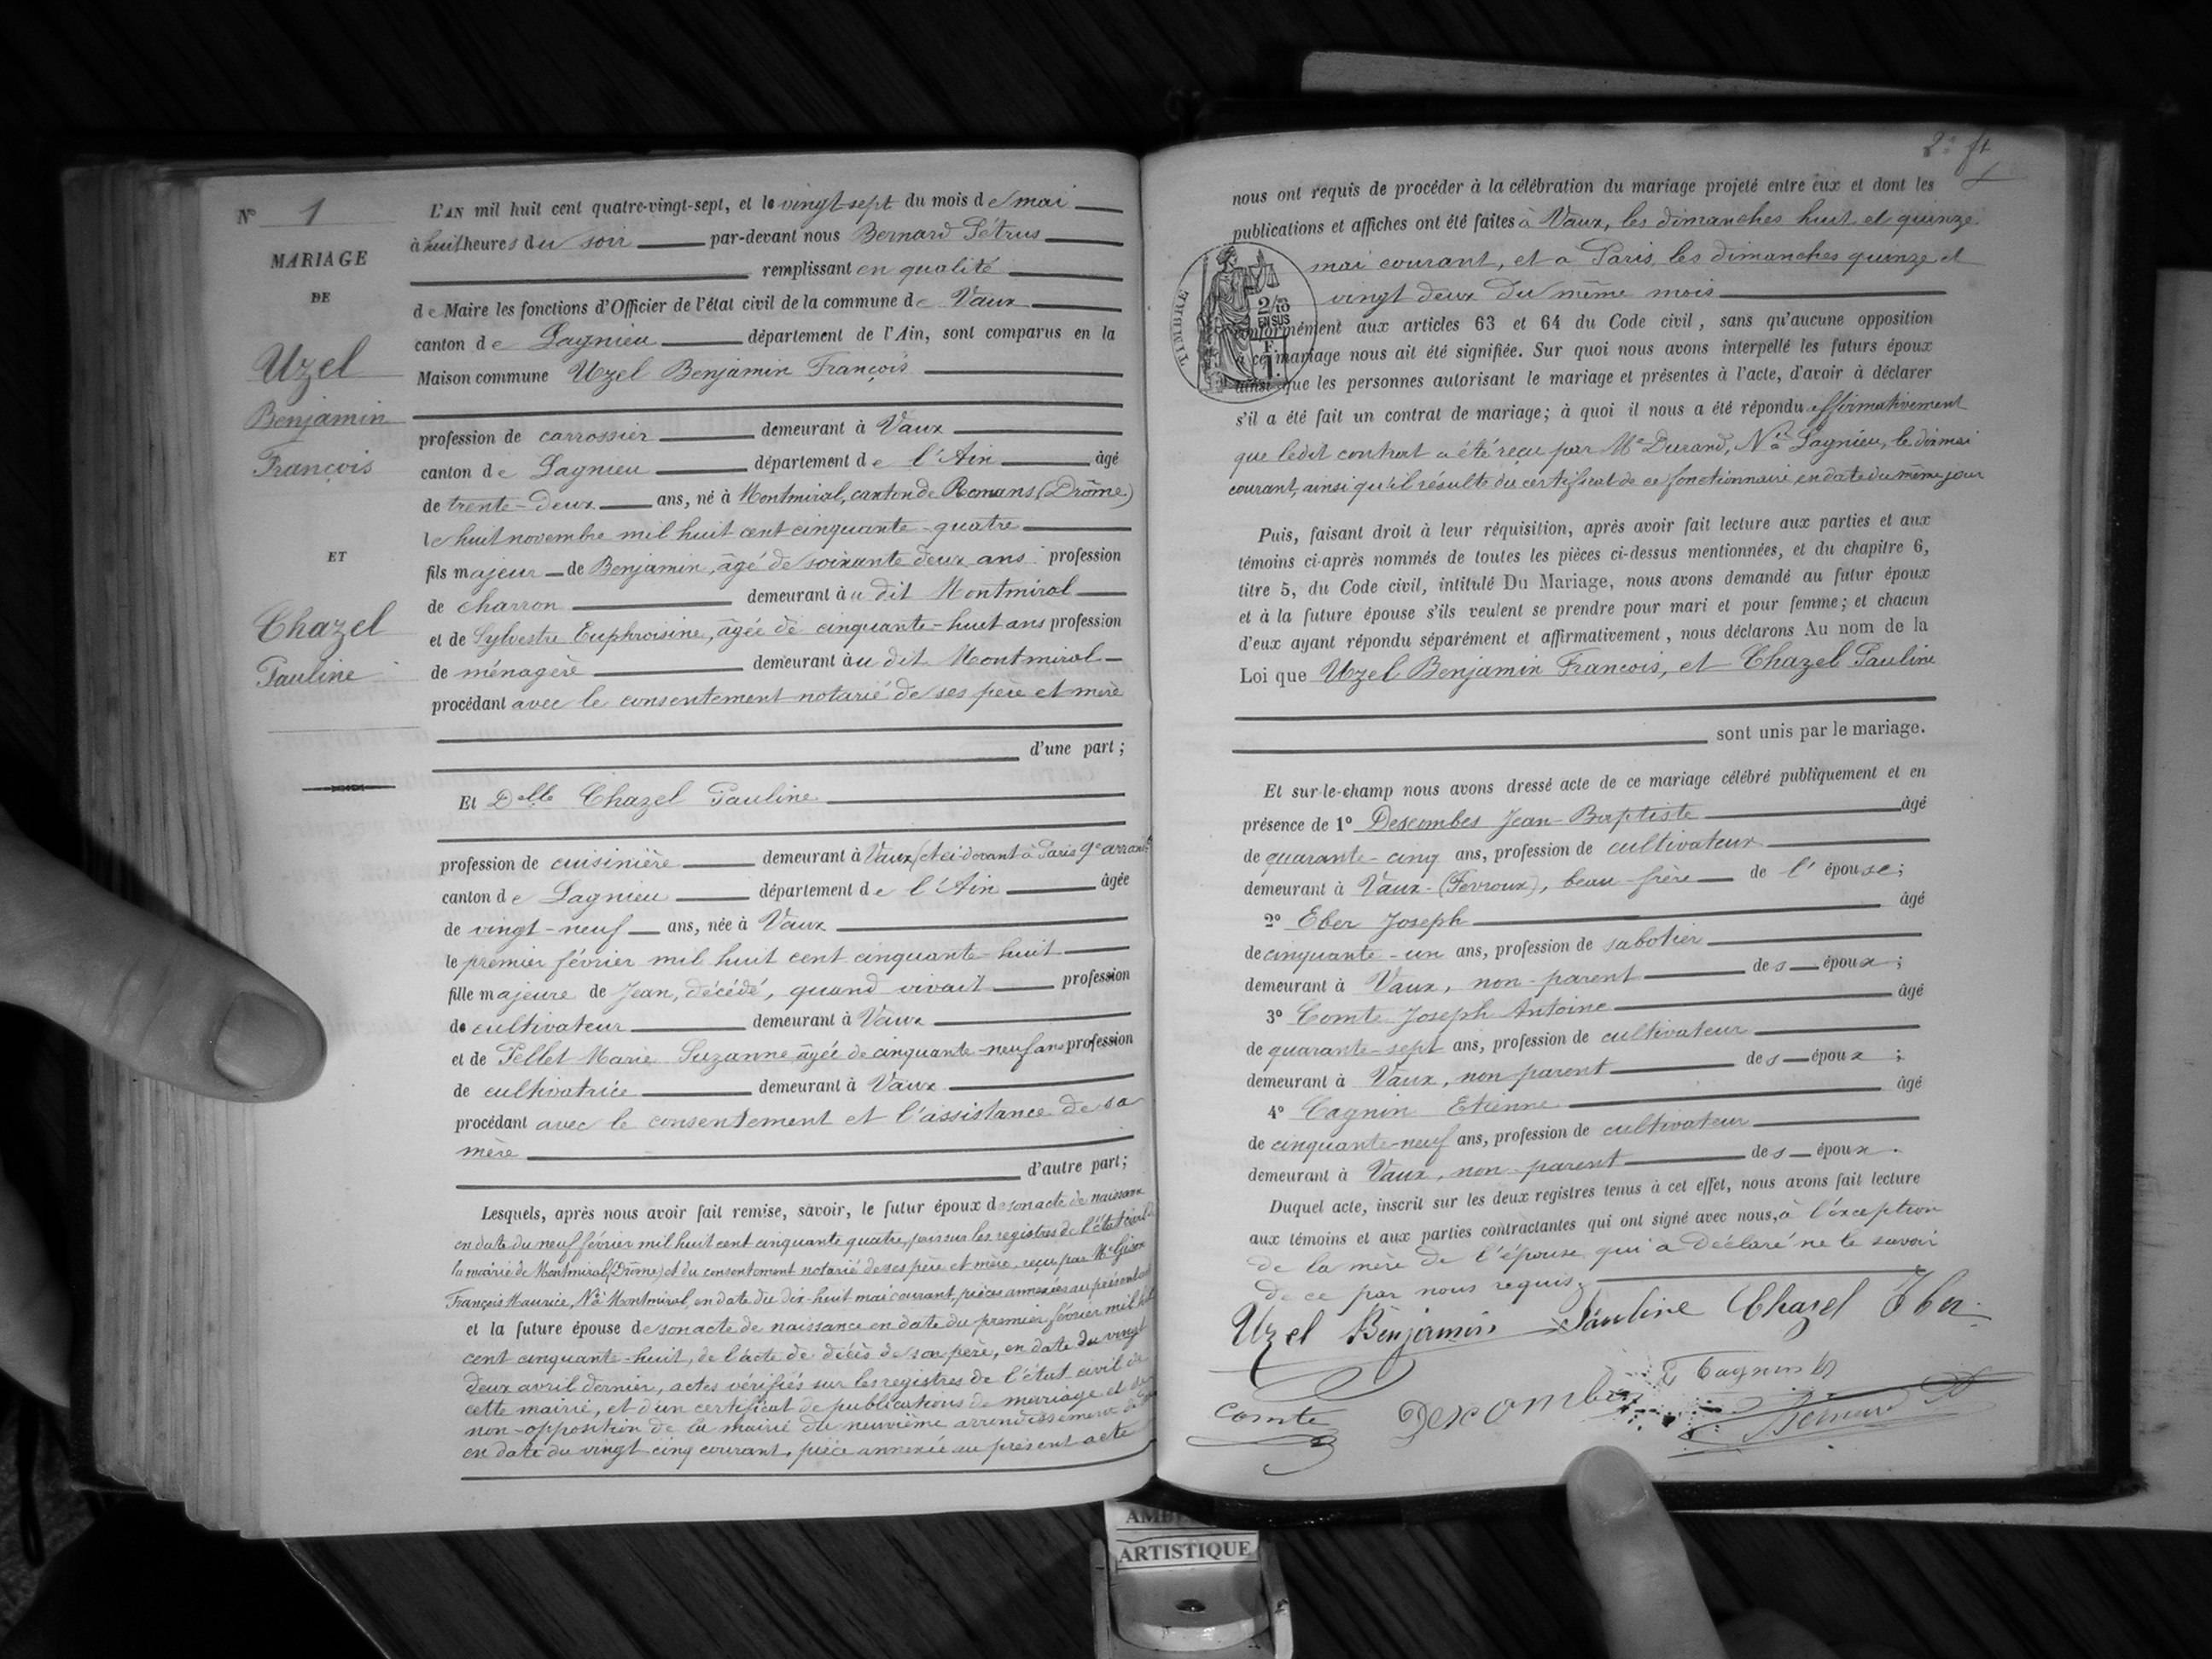 N° 1
MARIAGE
DE
Uzel
Benjamin
François
ET
Chazel
Pauline
L'AN mil huit cent quatre-vingt-sept, et le vingt-sept du mois de mai
à huit heures du soir par-devant nous Bernard Pétrus
remplissant en qualité
de Maire les fonctions d'Officier de l'état civil de la commune de Vaux
canton de Lagnieu département de l'Ain, sont comparus en la
Maison commune Uzel Benjamin François
profession de carrossier demeurant à Vaux
canton de Lagnieu département de l'Ain âgé
de trente-deux ans, né à Montmiral, canton de Romans (Drôme)
le huit novembre mil huit cent cinquante-quatre
fils majeur de Benjamin, âgé de soixante deux ans profession
de charron demeurant au dit Montmiral
et de Sylvestre Euphroisine, âgée de cinquante-huit ans profession
de ménagère demeurant au dit Montmiral
procédant avec le consentement notarié de ses père et mère
d'une part;
Et Delle Chazel Pauline
profession de cuisinière demeurant à Vaux (et ci-devant à Paris 9e arrondt)
canton de Lagnieu département de l'Ain âgée
de vingt-neuf ans, née à Vaux
le premier février mil huit cent cinquante-huit
fille majeure de Jean, décédé, quand vivait profession
de cultivateur demeurant à Vaux
et de Pellet Marie Suzanne âgée de cinquante-neuf ans profession
de cultivatrice demeurant à Vaux
procédant avec le consentement et l'assistance de sa
mère
d'autre part;
Lesquels, après nous avoir fait remise, savoir, le futur époux de son acte de naissance
en date du neuf février mil huit cent cinquante quatre, pris sur les registres de l'état civil de
la mairie de Montmiral (Drôme) et du consentement notarié de ses père et mère, reçu par Me
François Maurice, Nre à Montmiral, en date du dix-huit mai courant, pièces annexées au présent acte
et la future épouse de son acte de naissance en date du premier février mil huit
cent cinquante-huit, de l'acte de décès de son père, en date du vingt
deux avril dernier, actes vérifiés sur les registres de l'état civil de
cette mairie, et d'un certificat de publications de mariage et de
non-opposition de la mairie du neuvième arrondissement de
en date du vingt cinq courant, pièce annexée au présent acte
2e ft
nous ont requis de procéder à la célébration du mariage projeté entre eux et dont les
publications et affiches ont été faites à Vaux, les dimanches huit et quinze
mai courant, et à Paris les dimanches quinze et
vingt deux du même mois
TIMBRE
2/10
EN SUS
F.
1.
conformément aux articles 63 et 64 du Code civil, sans qu'aucune opposition
à ce mariage nous ait été signifiée. Sur quoi nous avons interpellé les futurs époux
ainsi que les personnes autorisant le mariage et présentes à l'acte, d'avoir à déclarer
s'il a été fait un contrat de mariage; à quoi il nous a été répondu affirmativement
que ledit contrat a été reçu par Me Durand, Nre à Lagnieu, le dix mai
courant, ainsi qu'il résulte du certificat de ce fonctionnaire en date du même jour
Puis, faisant droit à leur réquisition, après avoir fait lecture aux parties et aux
témoins ci-après nommés de toutes les pièces ci-dessus mentionnées, et du chapitre 6,
titre 5, du Code civil, intitulé Du Mariage, nous avons demandé au futur époux
et à la future épouse s'ils veulent se prendre pour mari et pour femme; et chacun
d'eux ayant répondu séparément et affirmativement, nous déclarons Au nom de la
Loi que Uzel Benjamin François, et Chazel Pauline
sont unis par le mariage.
Et sur-le-champ nous avons dressé acte de ce mariage célébré publiquement et en
présence de 1° Descombes Jean-Baptiste âgé
de quarante-cinq ans, profession de cultivateur
demeurant à Vaux-(Fevroux), beau-frère de l'épouse;
2° Eber Joseph âgé
de cinquante-un ans, profession de sabotier
demeurant à Vaux, non parent des époux;
3° Comte Joseph Antoine âgé
de quarante-sept ans, profession de cultivateur
demeurant à Vaux, non parent des époux;
4° Cagnin Etienne âgé
de cinquante-neuf ans, profession de cultivateur
demeurant à Vaux, non-parent des époux.
Duquel acte, inscrit sur les deux registres tenus à cet effet, nous avons fait lecture
aux témoins et aux parties contractantes qui ont signé avec nous, à l'exception
de la mère de l'épouse qui a déclaré ne le savoir
de ce par nous requis
Uzel Benjamin Pauline Chazel Eber
comte Descombes Cagnin Bernard
AMB
ARTISTIQUE